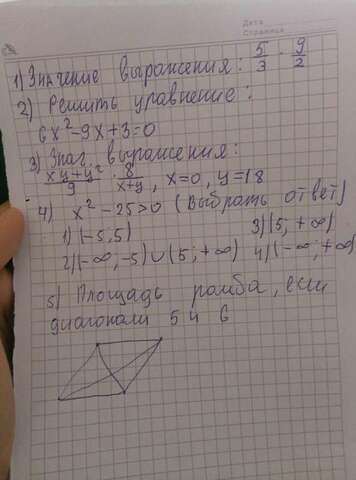 Дата
Страница
1) Значение выражения: 5/3 · 9/2
2) Решить уравнение:
6x²-9x+3=0
3) Знач. выражения:
xy+y²/9 · 8/x+y, x=0, y=18
4) x²-25>0 (Выбрать ответ)
1) (-5,5) 3) (5; +∞)
2) (-∞, -5) ∪ (5; +∞) 4) (-∞; +∞)
5) Площадь ромба, если
диагонали 5 и 6